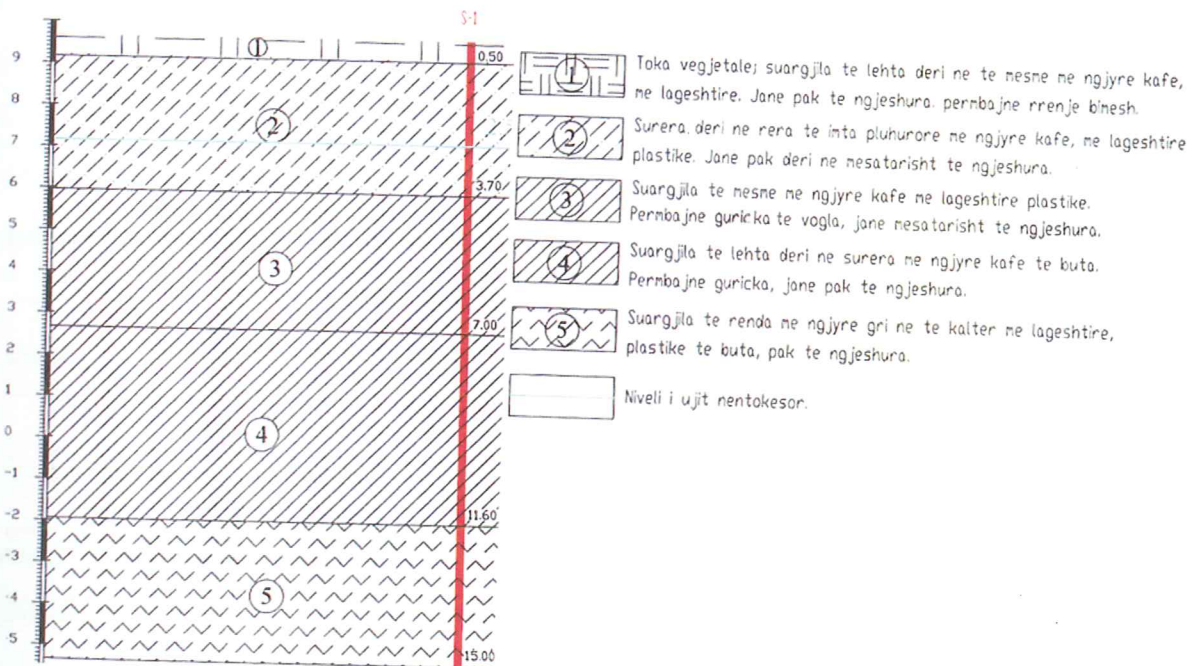 S-1
9
8
7
6
5
4
3
2
1
0
-1
-2
-3
-4
-5
1
2
3
4
5
0.50
3.70
7.00
11.60
15.00
1
Toka vegjetale; suargjila te lehta deri ne te mesme me ngjyre kafe,
me lageshtire. Jane pak te ngjeshura. permbajne rrenje bimesh.
2
Surera. deri ne rera te imta pluhurore me ngjyre kafe, me lageshtire
plastike. Jane pak deri ne mesatarisht te ngjeshura.
3
Suargjila te mesme me ngjyre kafe me lageshtire plastike.
Permbajne guricka te vogla, jane mesatarisht te ngjeshura.
4
Suargjila te lehta deri ne surera me ngjyre kafe te buta.
Permbajne guricka, jane pak te ngjeshura.
5
Suargjila te renda me ngjyre gri ne te kalter me lageshtire,
plastike te buta, pak te ngjeshura.
Niveli i ujit nentokesor.